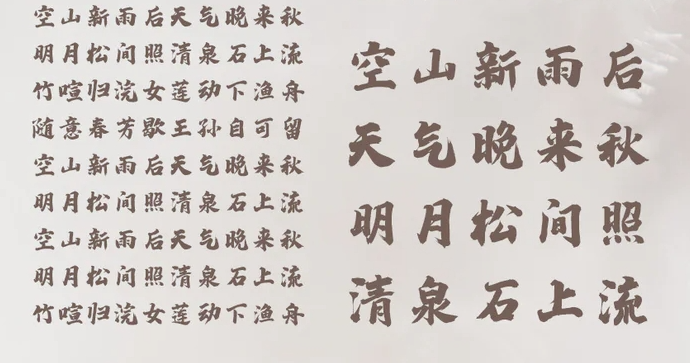 空山新雨后天气晚来秋
明月松间照清泉石上流
竹喧归浣女莲动下渔舟
随意春芳歇王孙自可留
空山新雨后天气晚来秋
明月松间照清泉石上流
空山新雨后天气晚来秋
明月松间照清泉石上流
竹喧归浣女莲动下渔舟
空山新雨后
天气晚来秋
明月松间照
清泉石上流